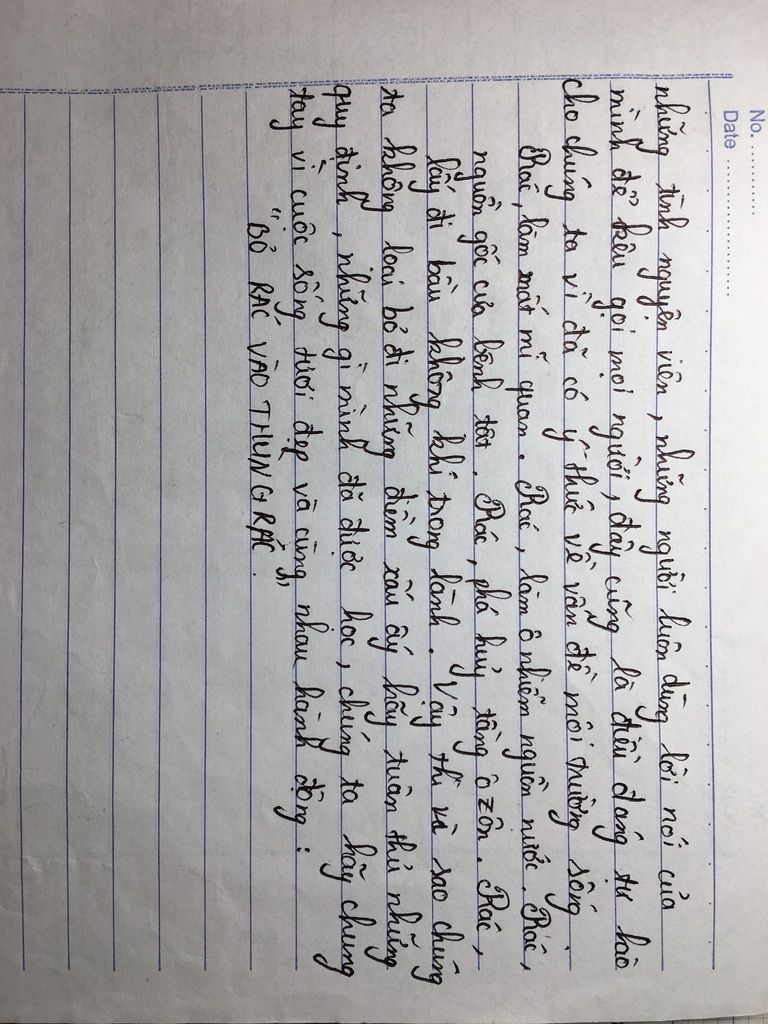 No. ............
Date ......................
những tình nguyện viên, những người luôn dùng lời nói của
mình để kêu gọi mọi người, đây cũng là điều đáng tự hào
cho chúng ta vì đã có ý thức về vấn đề môi trường sống.
Rác, làm mất mĩ quan. Rác, làm ô nhiễm nguồn nước. Rác,
nguồn gốc của bệnh tật. Rác, phá huỷ tầng ôzôn. Rác,
lấy đi bầu không khí trong lành. Vậy thì vì sao chúng
ta không loại bỏ đi những điểm xấu ấy hãy tuân thủ những
quy định, những gì mình đã được học, chúng ta hãy chung
tay vì cuộc sống tươi đẹp và cùng nhau hành động:
"BỎ RÁC VÀO THÙNG RÁC".